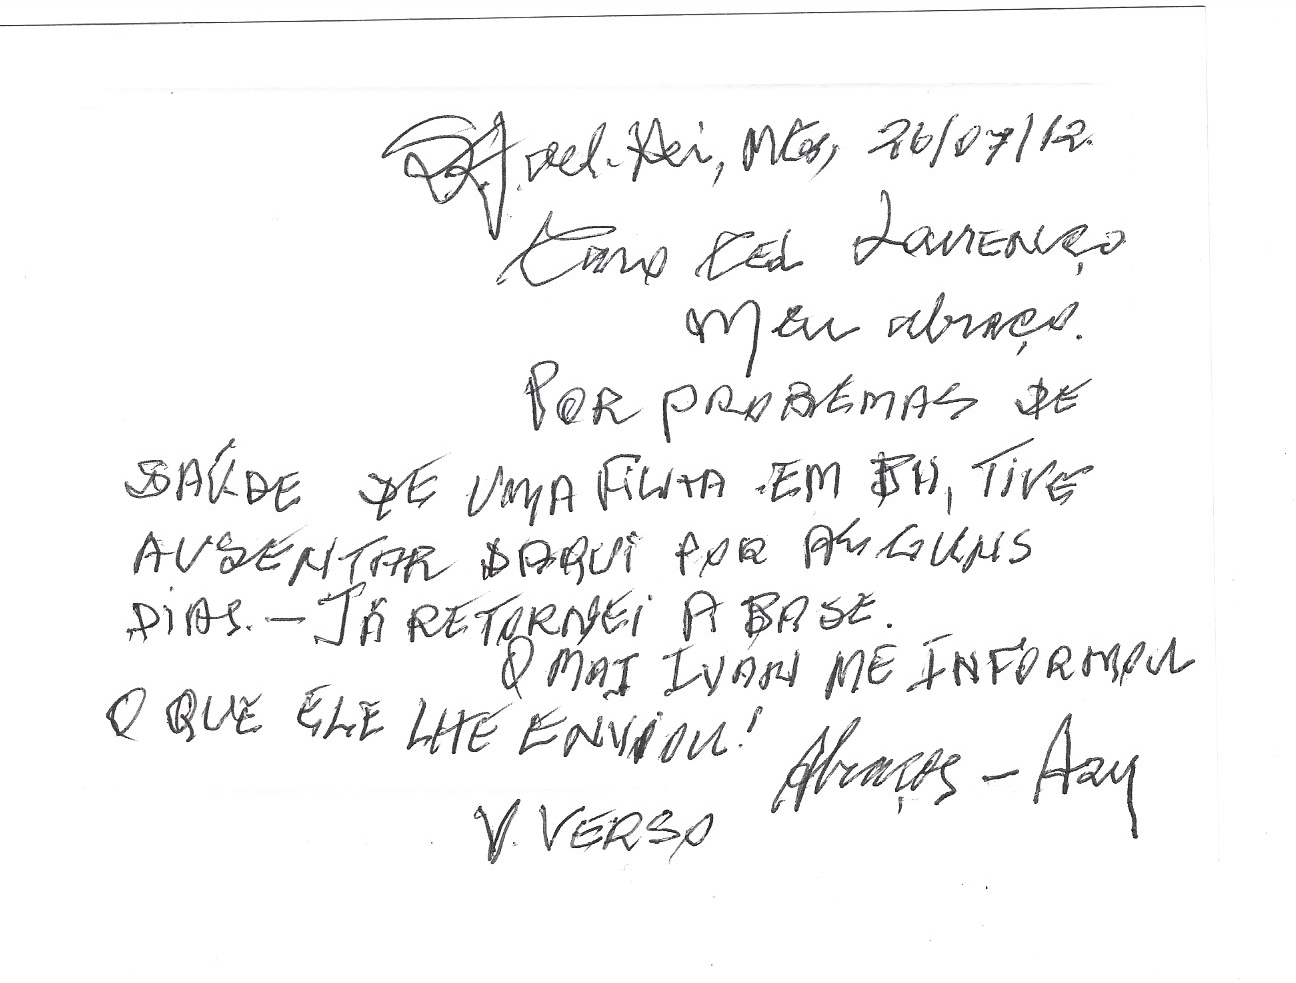 S. J. del-Rei, Mg, 26/07/12.
Caro Cel Lourenço
Meu abraço.
POR PROBLEMAS DE
SAÚDE DE UMA FILHA EM BH, TIVE
AUSENTAR DAQUI POR ALGUNS
DIAS. – JÁ RETORNEI A BASE.
O MAJ IVAN ME INFORMOU
O QUE ELE LHE ENVIOU!
Abraços –
V. VERSO